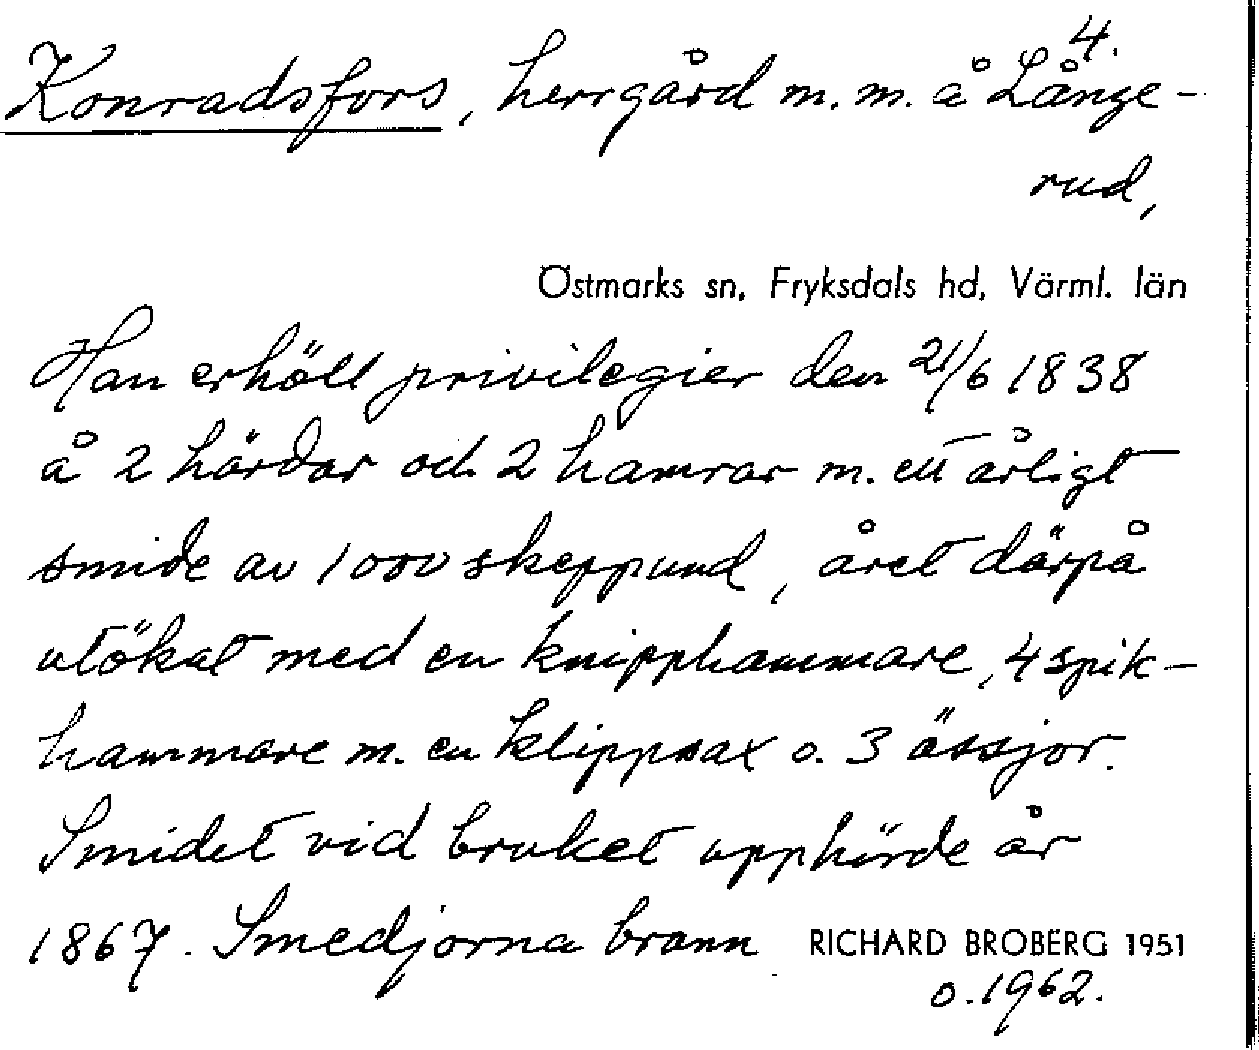 4.
Konradsfors, herrgård m.m. å Långe-
rud,
Östmarks sn, Fryksdals hd, Värml. län
Han erhöll privilegier den 21/6 1838
å 2 härdar och 2 hamrar m. ett årligt
smide av 1000 skeppund, året därpå
utökat med en knipphammare, 4 spik-
hammare m. en klippsax o. 3 ässjor.
Smidet vid bruket upphörde år
1867. Smedjorna brann RICHARD BROBERG 1951
o. 1962.